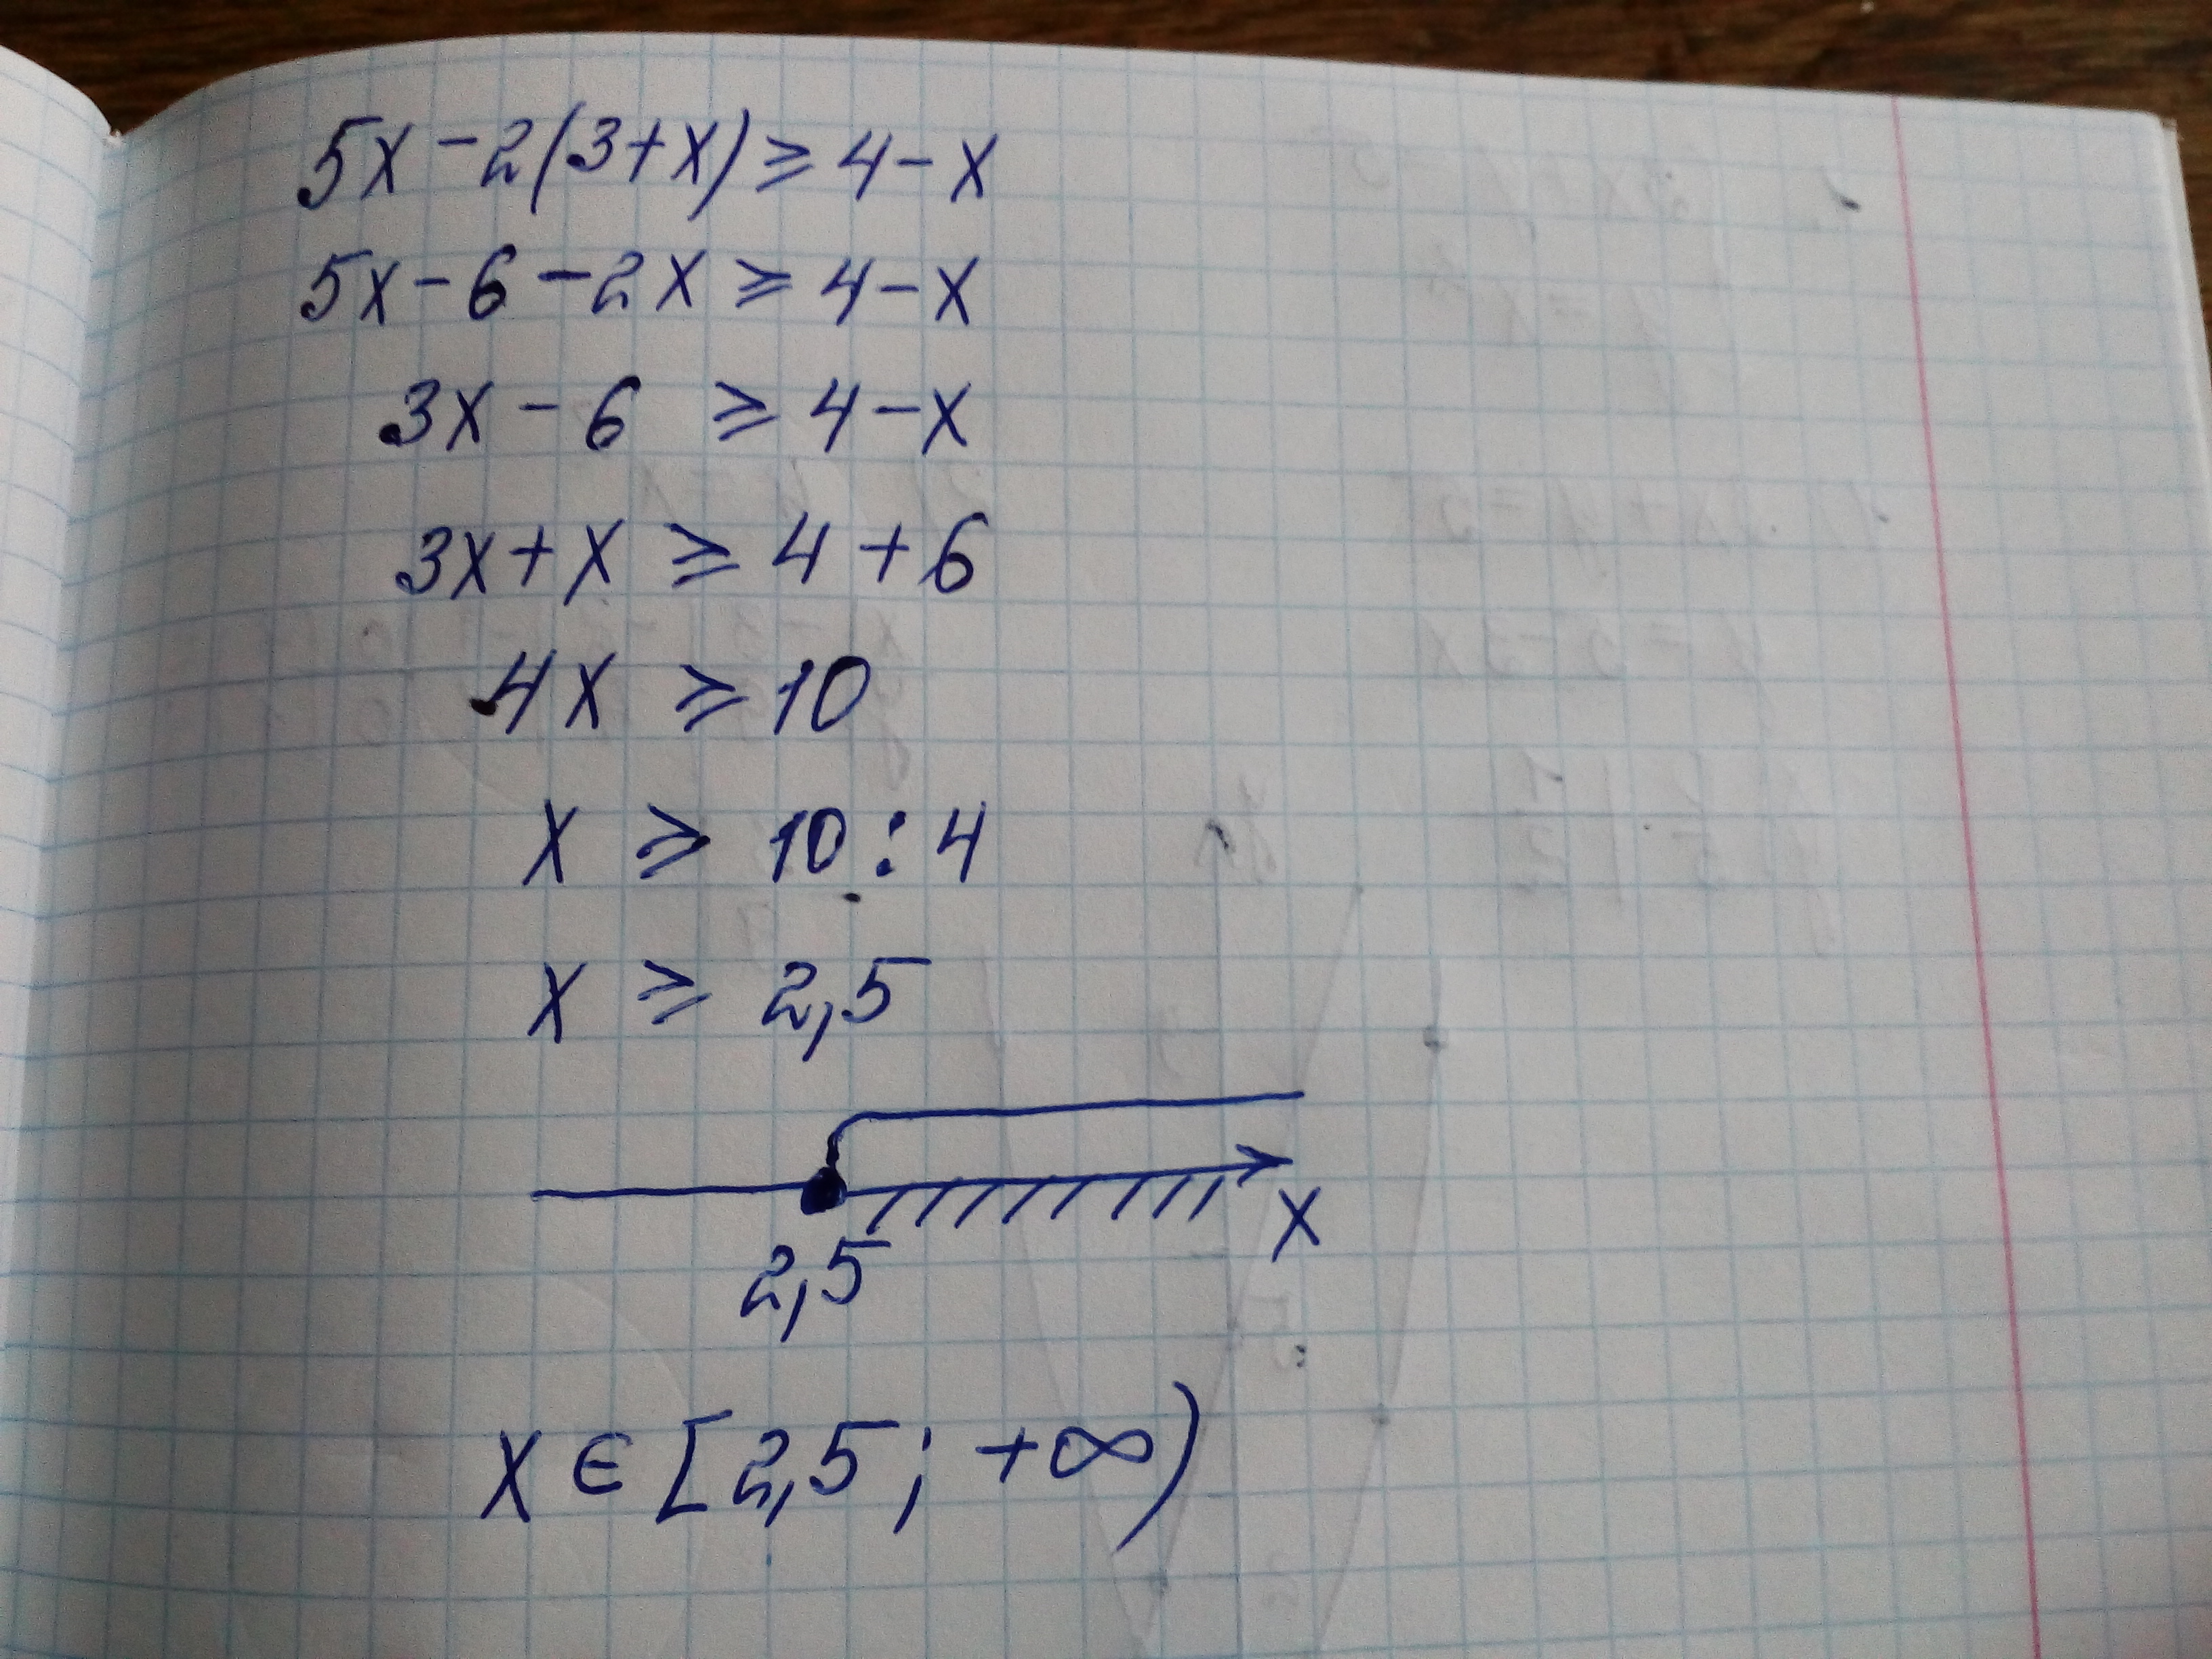 5x-2(3+x)≥4-x
5x-6-2x≥4-x
3x-6≥4-x
3x+x≥4+6
4x≥10
x≥10:4
x≥2,5
2,5 x
x∈[2,5;+∞)